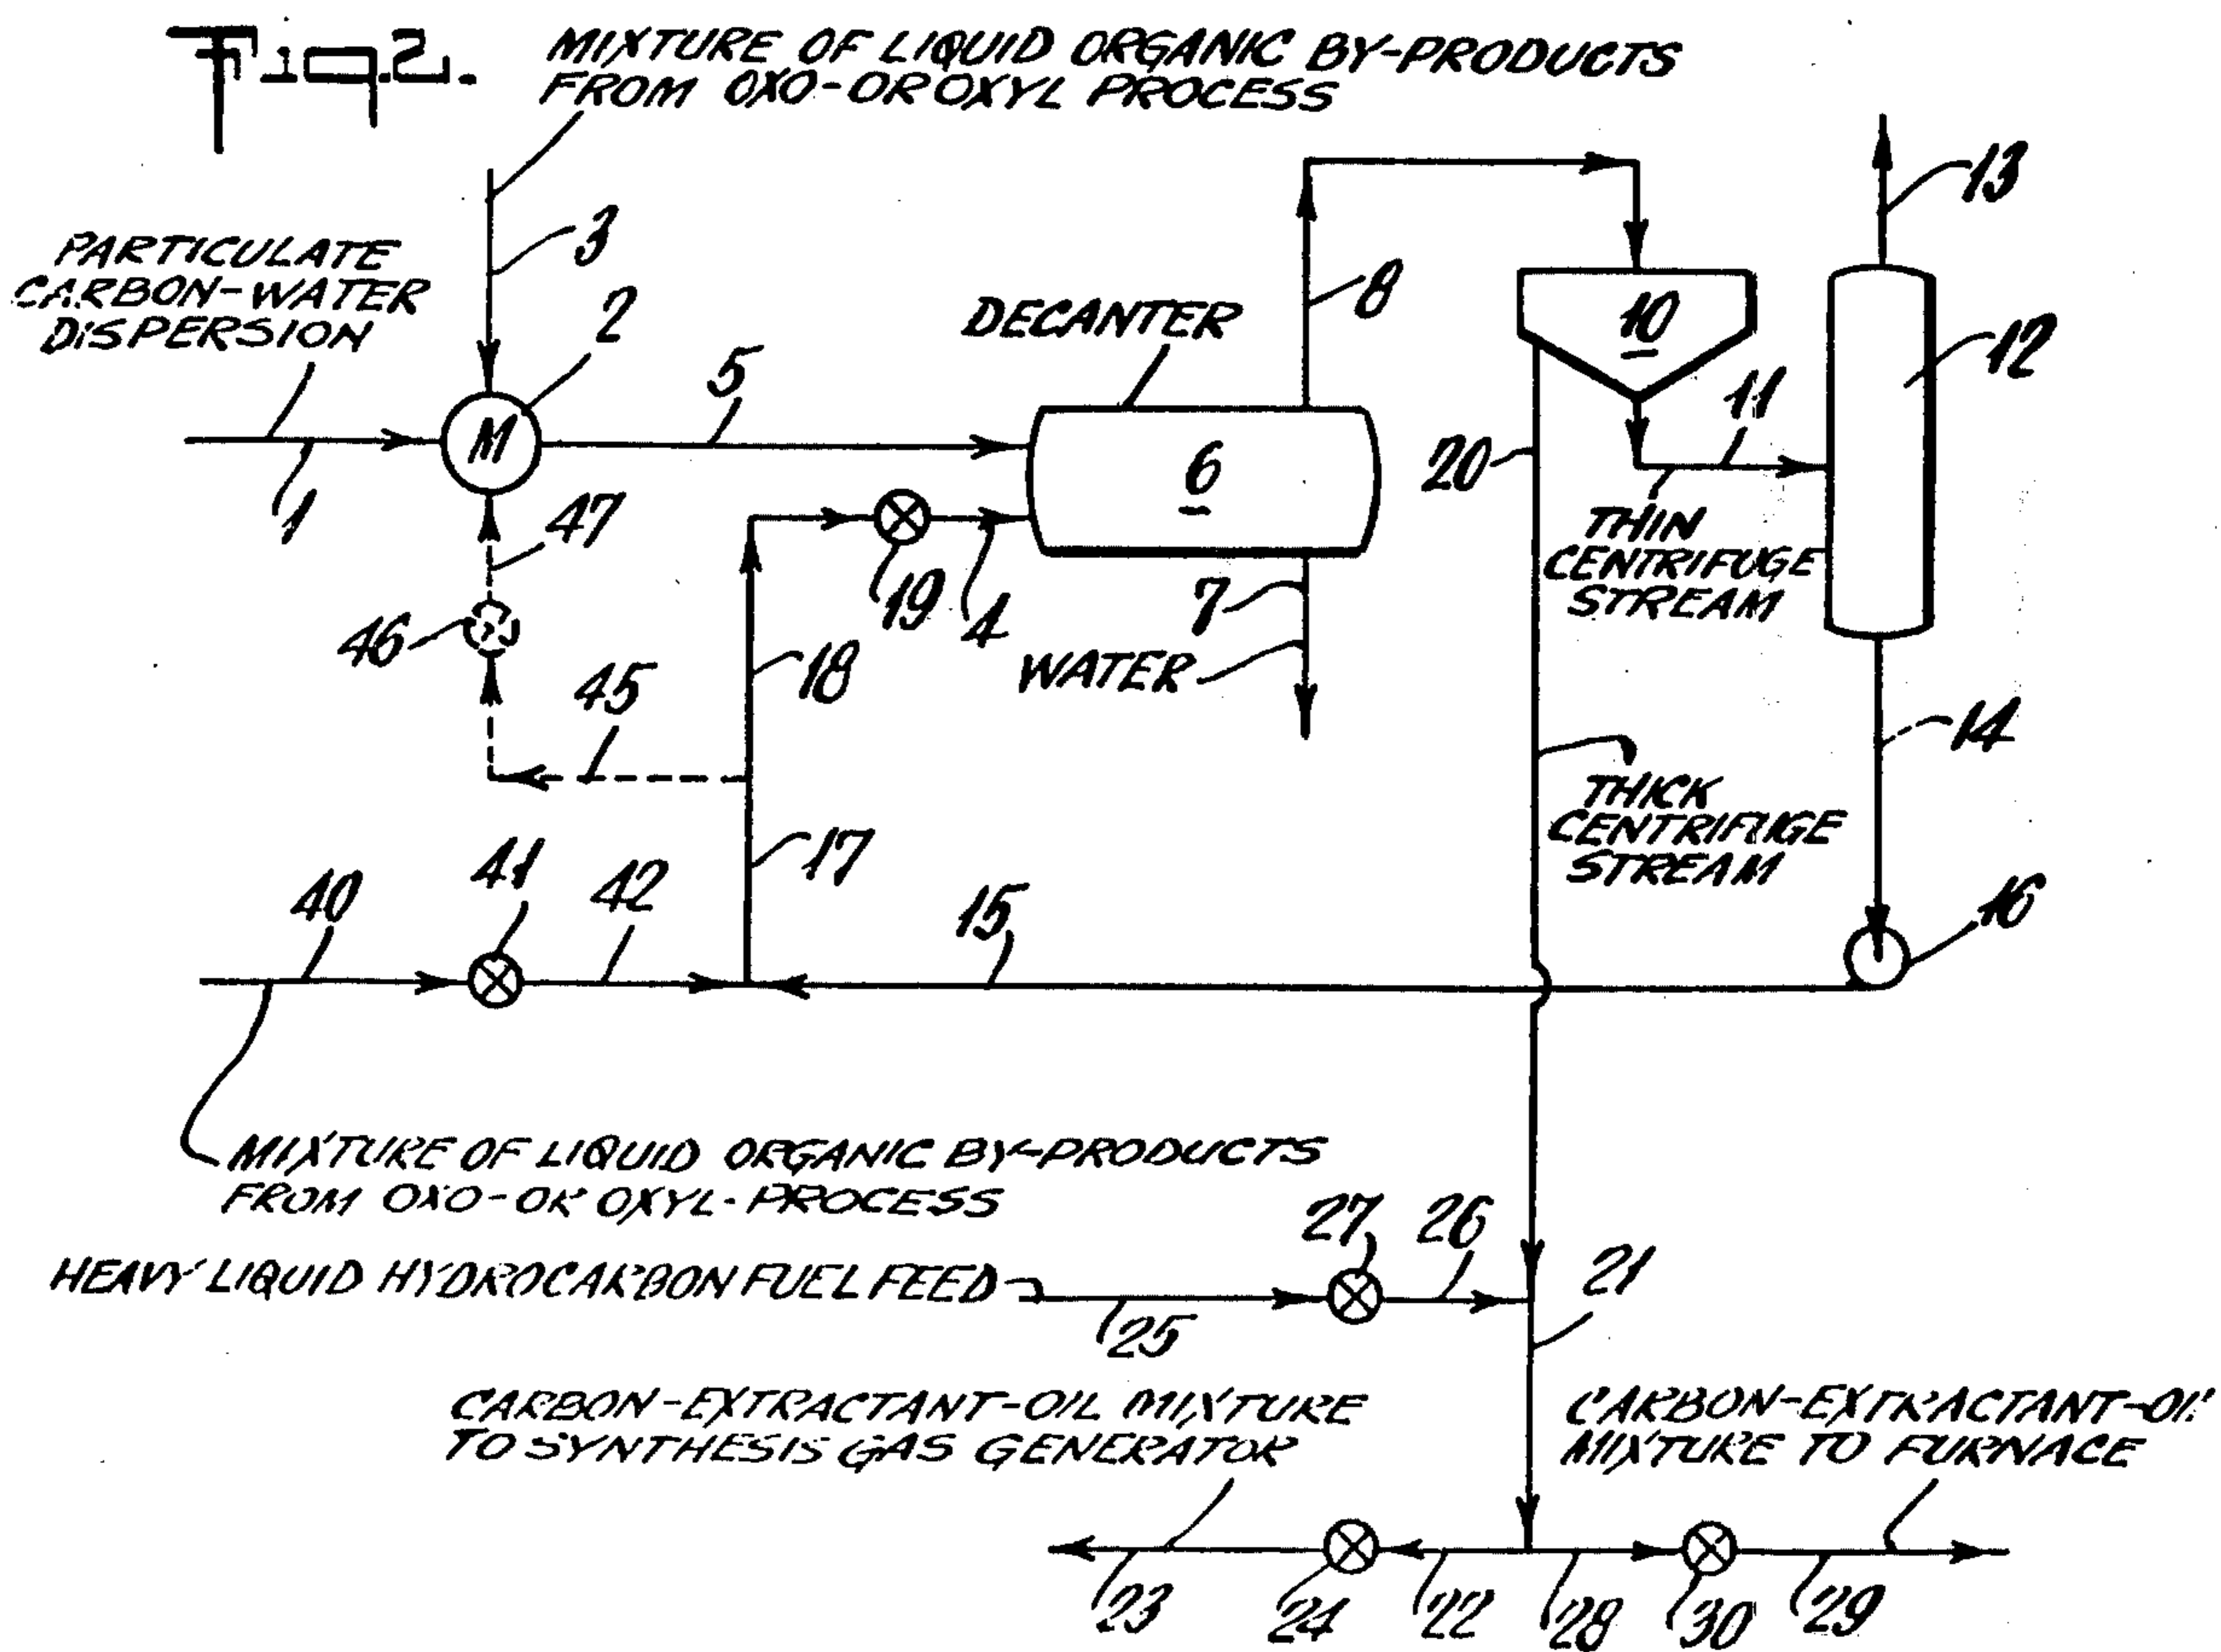 Fig.2.
MIXTURE OF LIQUID ORGANIC BY-PRODUCTS
FROM OXO-OR OXYL PROCESS
13
PARTICULATE
CARBON-WATER
DISPERSION
3
2
8
DECANTER
10
12
5
11
M
6
20
1
47
THIN
CENTRIFUGE
STREAM
19
4
7
46
18
WATER
45
14
THICK
CENTRIFUGE
STREAM
17
41
40
42
15
16
MIXTURE OF LIQUID ORGANIC BY-PRODUCTS
FROM OXO-OR OXYL-PROCESS
27
26
HEAVY LIQUID HYDROCARBON FUEL FEED
21
25
CARBON-EXTRACTANT-OIL MIXTURE
TO SYNTHESIS GAS GENERATOR
CARBON-EXTRACTANT-OIL
MIXTURE TO FURNACE
23
24
22
28
30
29